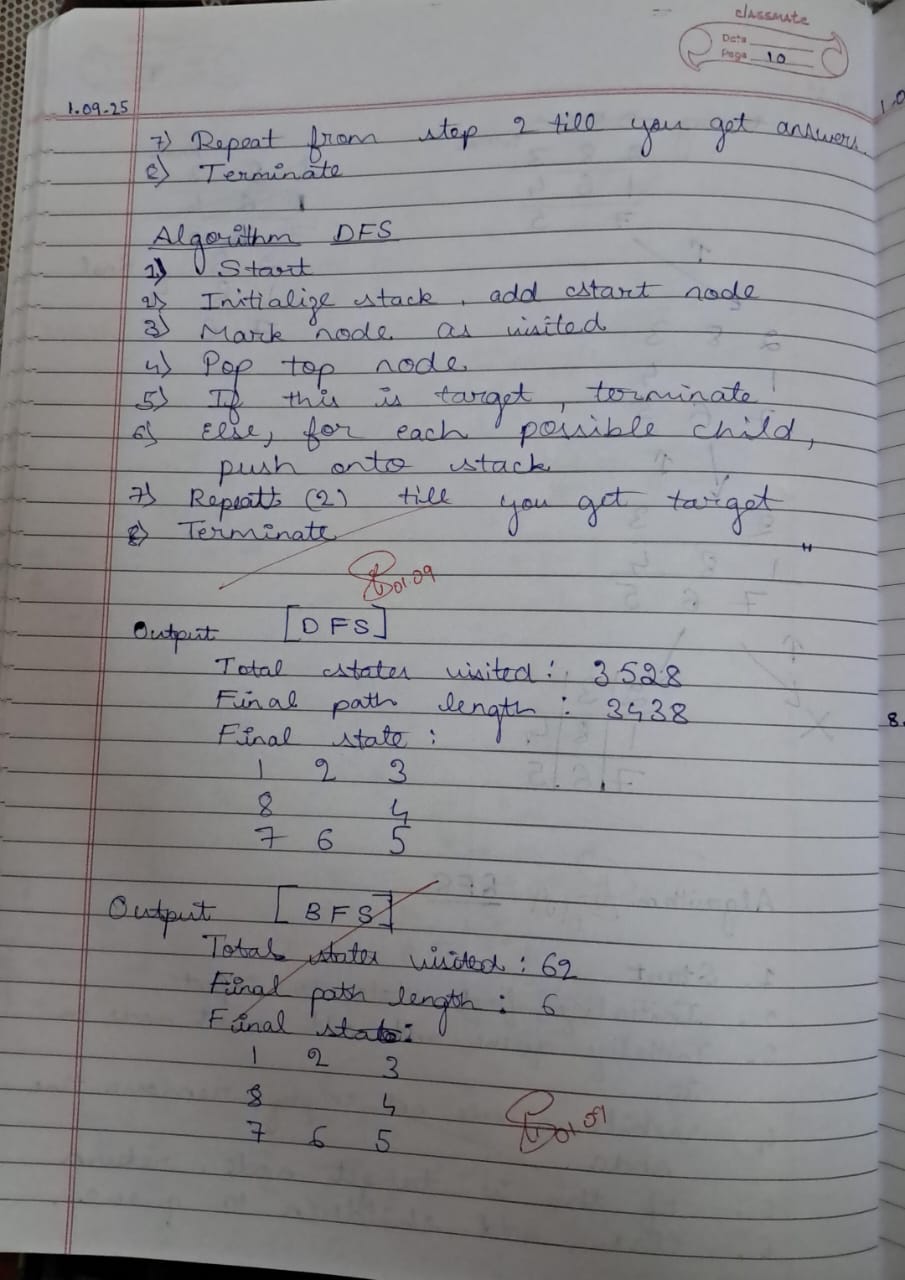 classmate
Date
Page 10
1.09-25
7) Repeat from step 2 till you get answers.
8) Terminate
Algorithm DFS
1) Start
2) Initialize stack, add start node
3) Mark node as visited
4) Pop top node
5) If this is target, terminate
6) Else, for each possible child,
push onto stack
7) Repeatts (2) till you get target
8) Terminate
01.09
Output [DFS]
Total states visited: 3528
Final path length: 3438
Final state:
1 2 3
8 4
7 6 5
Output [BFS]
Total states visited: 62
Final path length: 6
Final state:
1 2 3
8 4
7 6 5
01.09